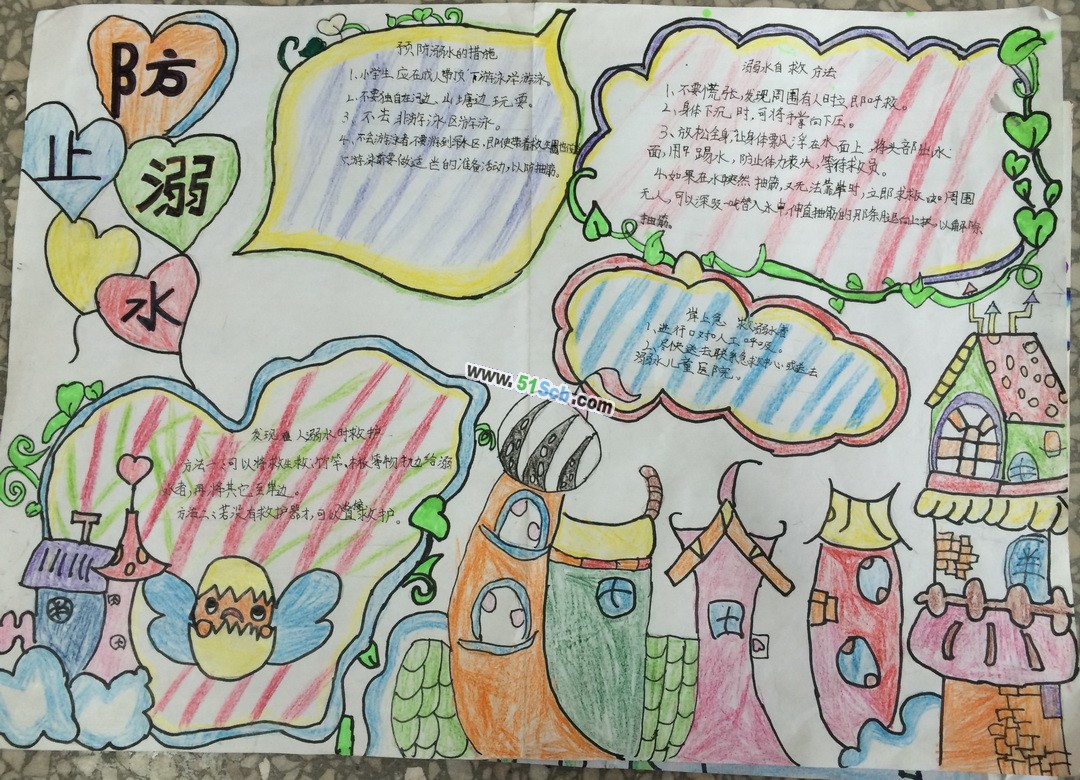 防
止
溺
水
预防溺水的措施
1、小学生应在成人带领下游泳学游泳。
2、不要独自在河边、山塘边玩耍。
3、不去非游泳区游泳。
4、不会游泳者,不要游到深水区,即使带着救生圈也
游泳前要做适当的准备活动,以防抽筋。
溺水自救方法
1、不要慌张,发现周围有人时立即呼救。
2、身体下沉时,可将手掌向下压。
3、放松全身,让身体飘浮在水面上,将头部浮出水
面,用脚踢水,防止体力丧失,等待救员。
4、如果在水中突然抽筋,又无法靠岸时,立即求救。如周围
无人,可以深吸一口气潜入水中,伸直抽筋的那条腿
抽筋。
岸上急救溺水者
1、进行口对口人工呼吸。
2、尽快送去联系急救中心或送去
溺水儿童医院。
www.51Scb.com
发现 人溺水时救护
方法一:可以将救生救、竹竿、木板等物抛给溺
水者,再将其 至岸边。
方法二:若没有救护器才,可以 救护。